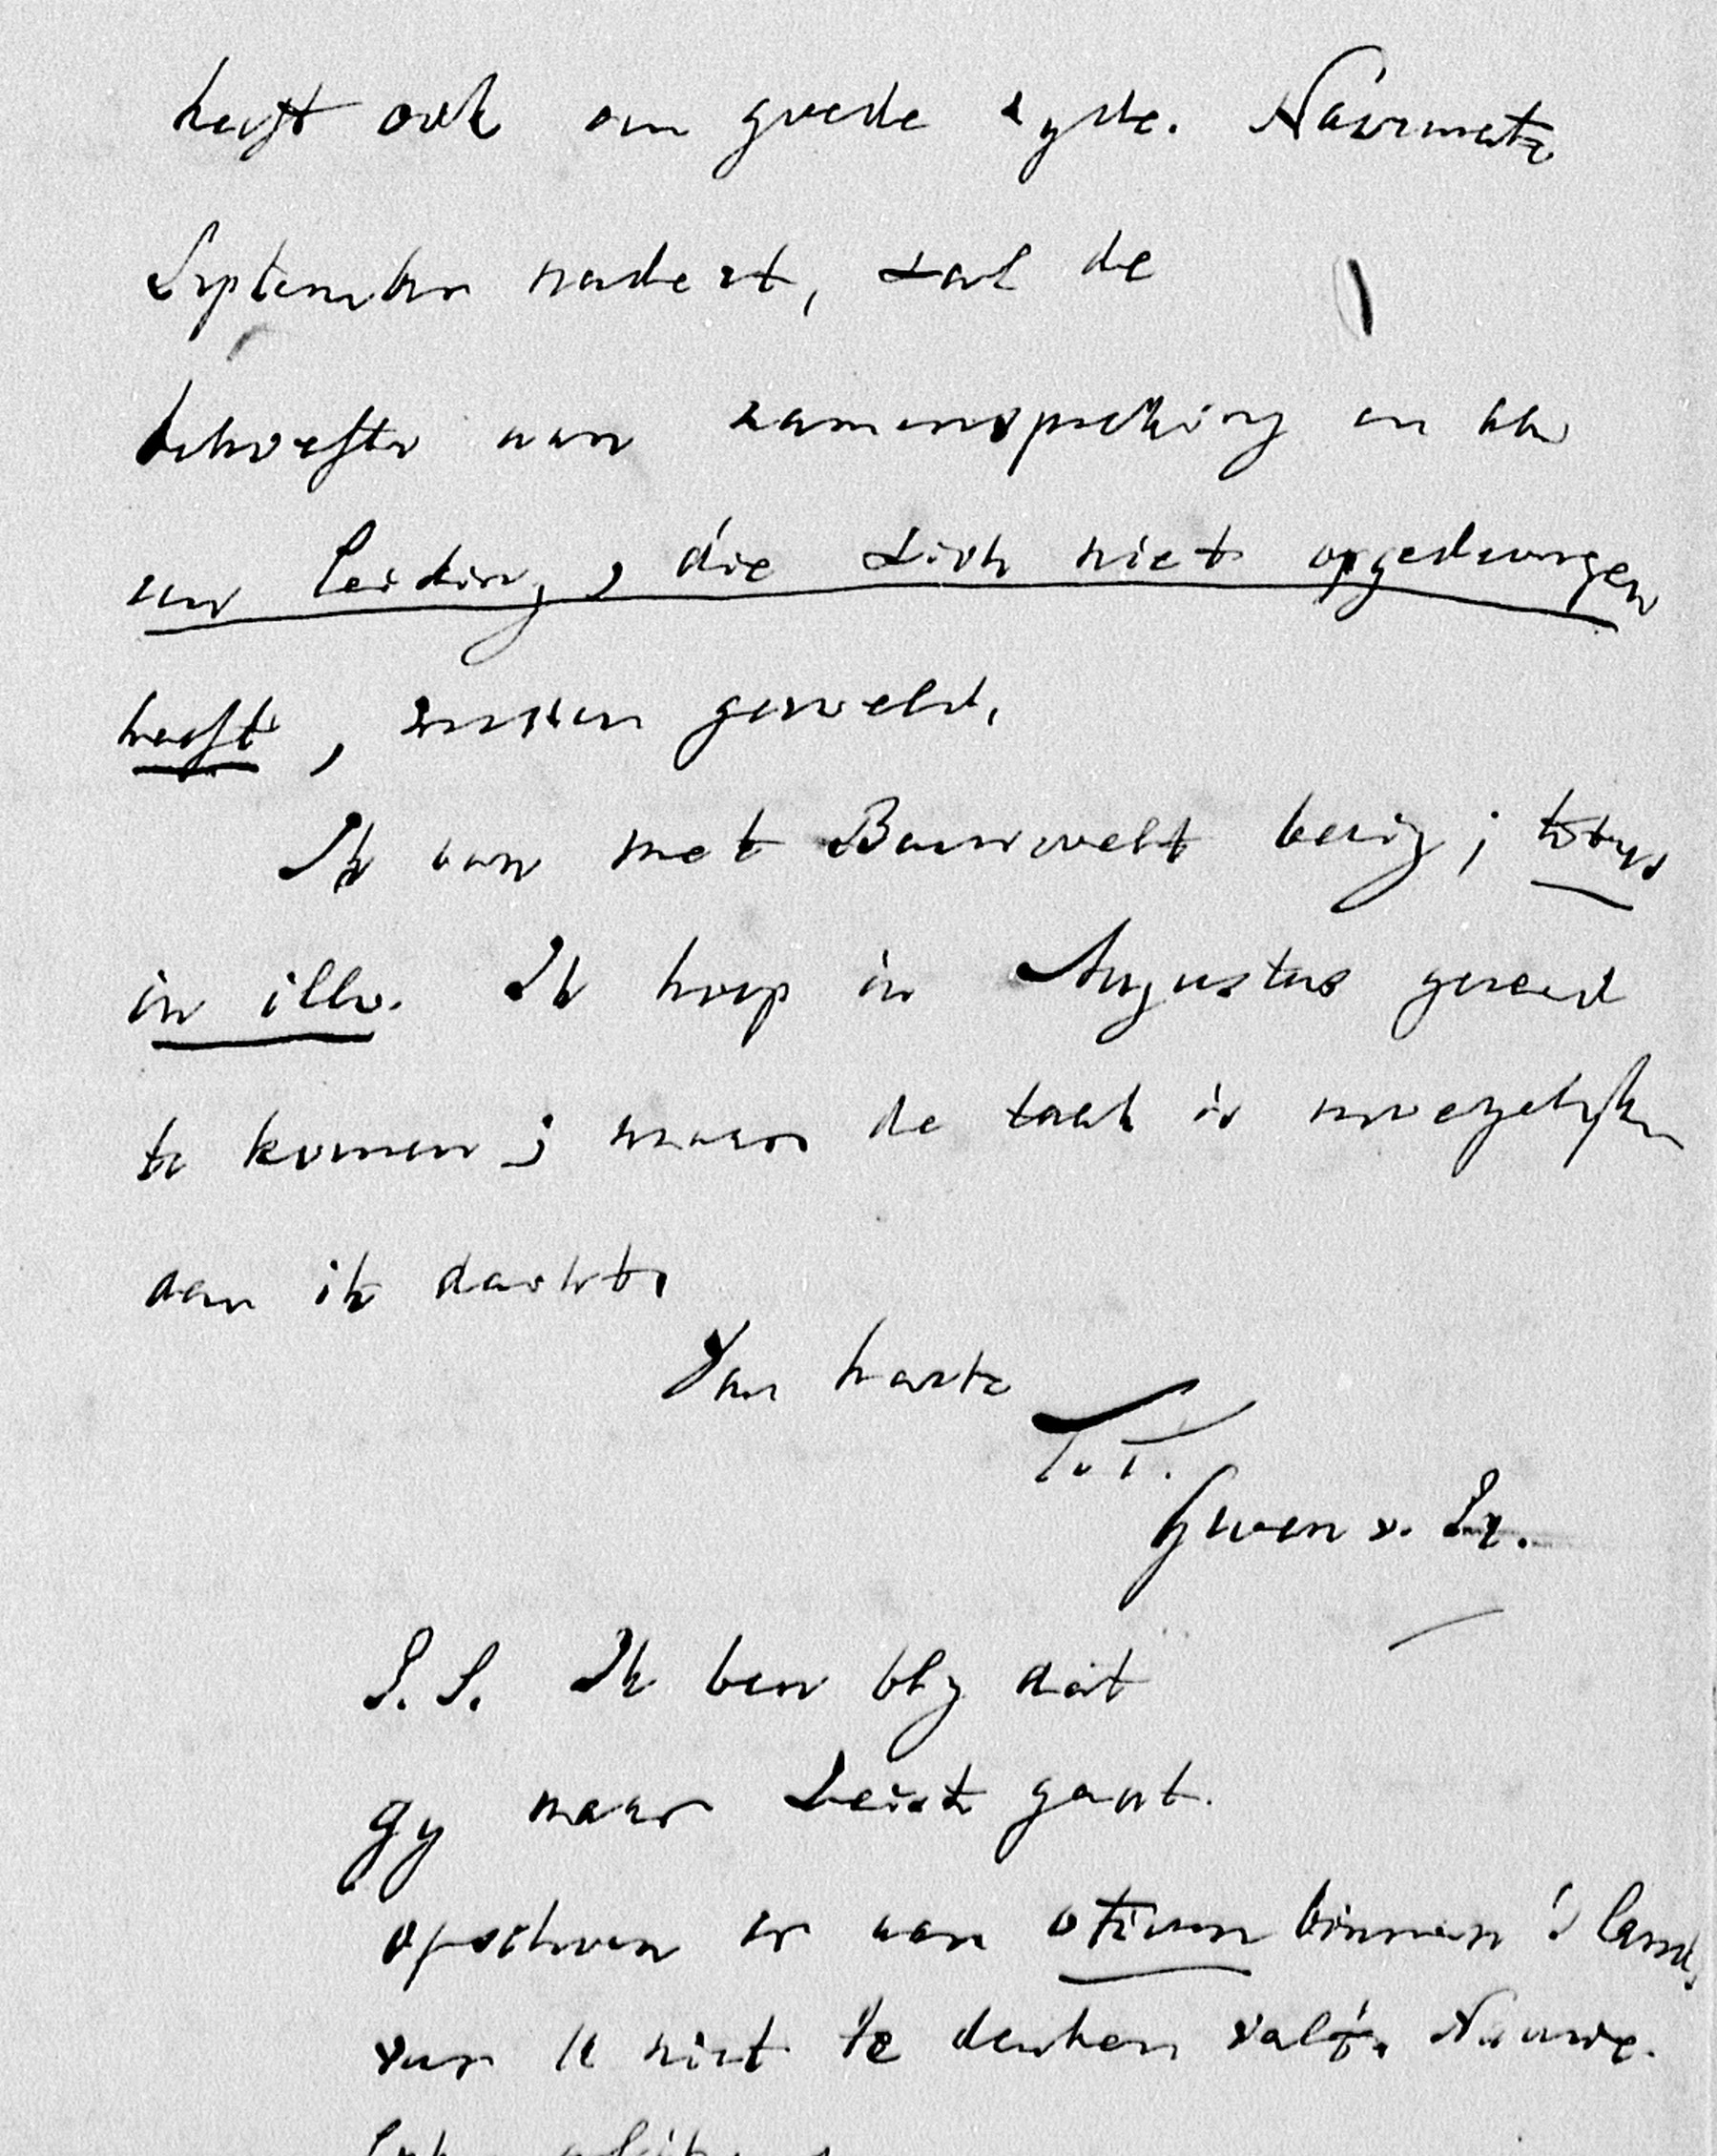 heeft ook een goede zyde. Naarmate
September nadert, zal de
behoefte aan zamenspreking en aan
uw leiding, die zich niet opgedrongen
heeft, worden gevoeld.
Ik ben met Barneveld bezig; totus
in illo. Ik hoop in Augustus gereed
te komen; maar de taak is moeyelyker
dan ik dacht.
Van harte
T.T.
Groen v. Pr.
P.S. Ik ben bly dat
gy naar Zeist gaat.
ofschoon er aan otium binnen 's lands
voor U niet te denken valt.